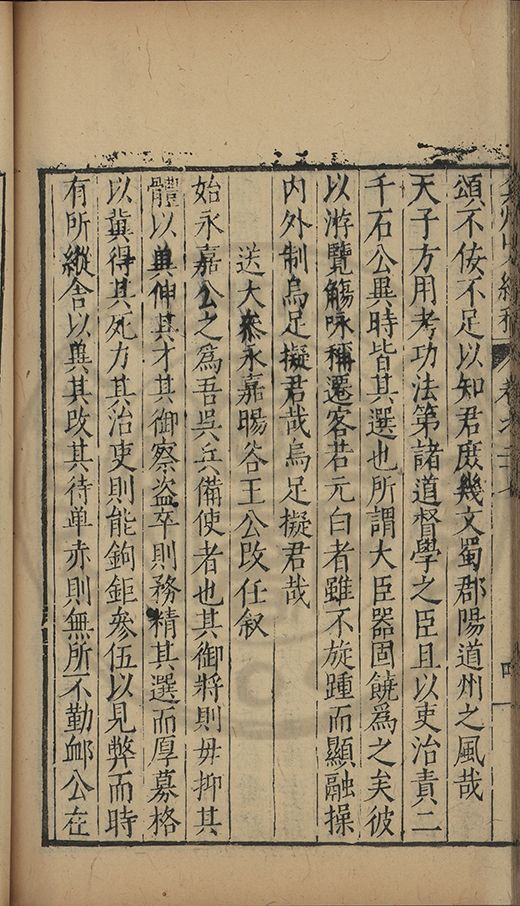 弇州山人續稿 卷之三十七 四
頌不佞不足以知君庶幾文蜀郡陽道州之風哉
天子方用考功法第諸道督學之臣且以吏治責二
千石公異時皆其選也所謂大臣器固饒為之矣彼
以游覽觴咏稱遷客若元白者雖不旋踵而顯融操
內外制烏足擬君哉烏足擬君哉
送大叅永嘉暘谷王公改任叙
始永嘉公之為吾吳兵備使者也其御將則毋抑其
體以伸其才其御察盗卒則務精其選而厚募格
以冀得其死力其治吏則能鉤鉅參伍以見弊而時
有所縱舍以與其改其待单赤則無所不勤䘏公在